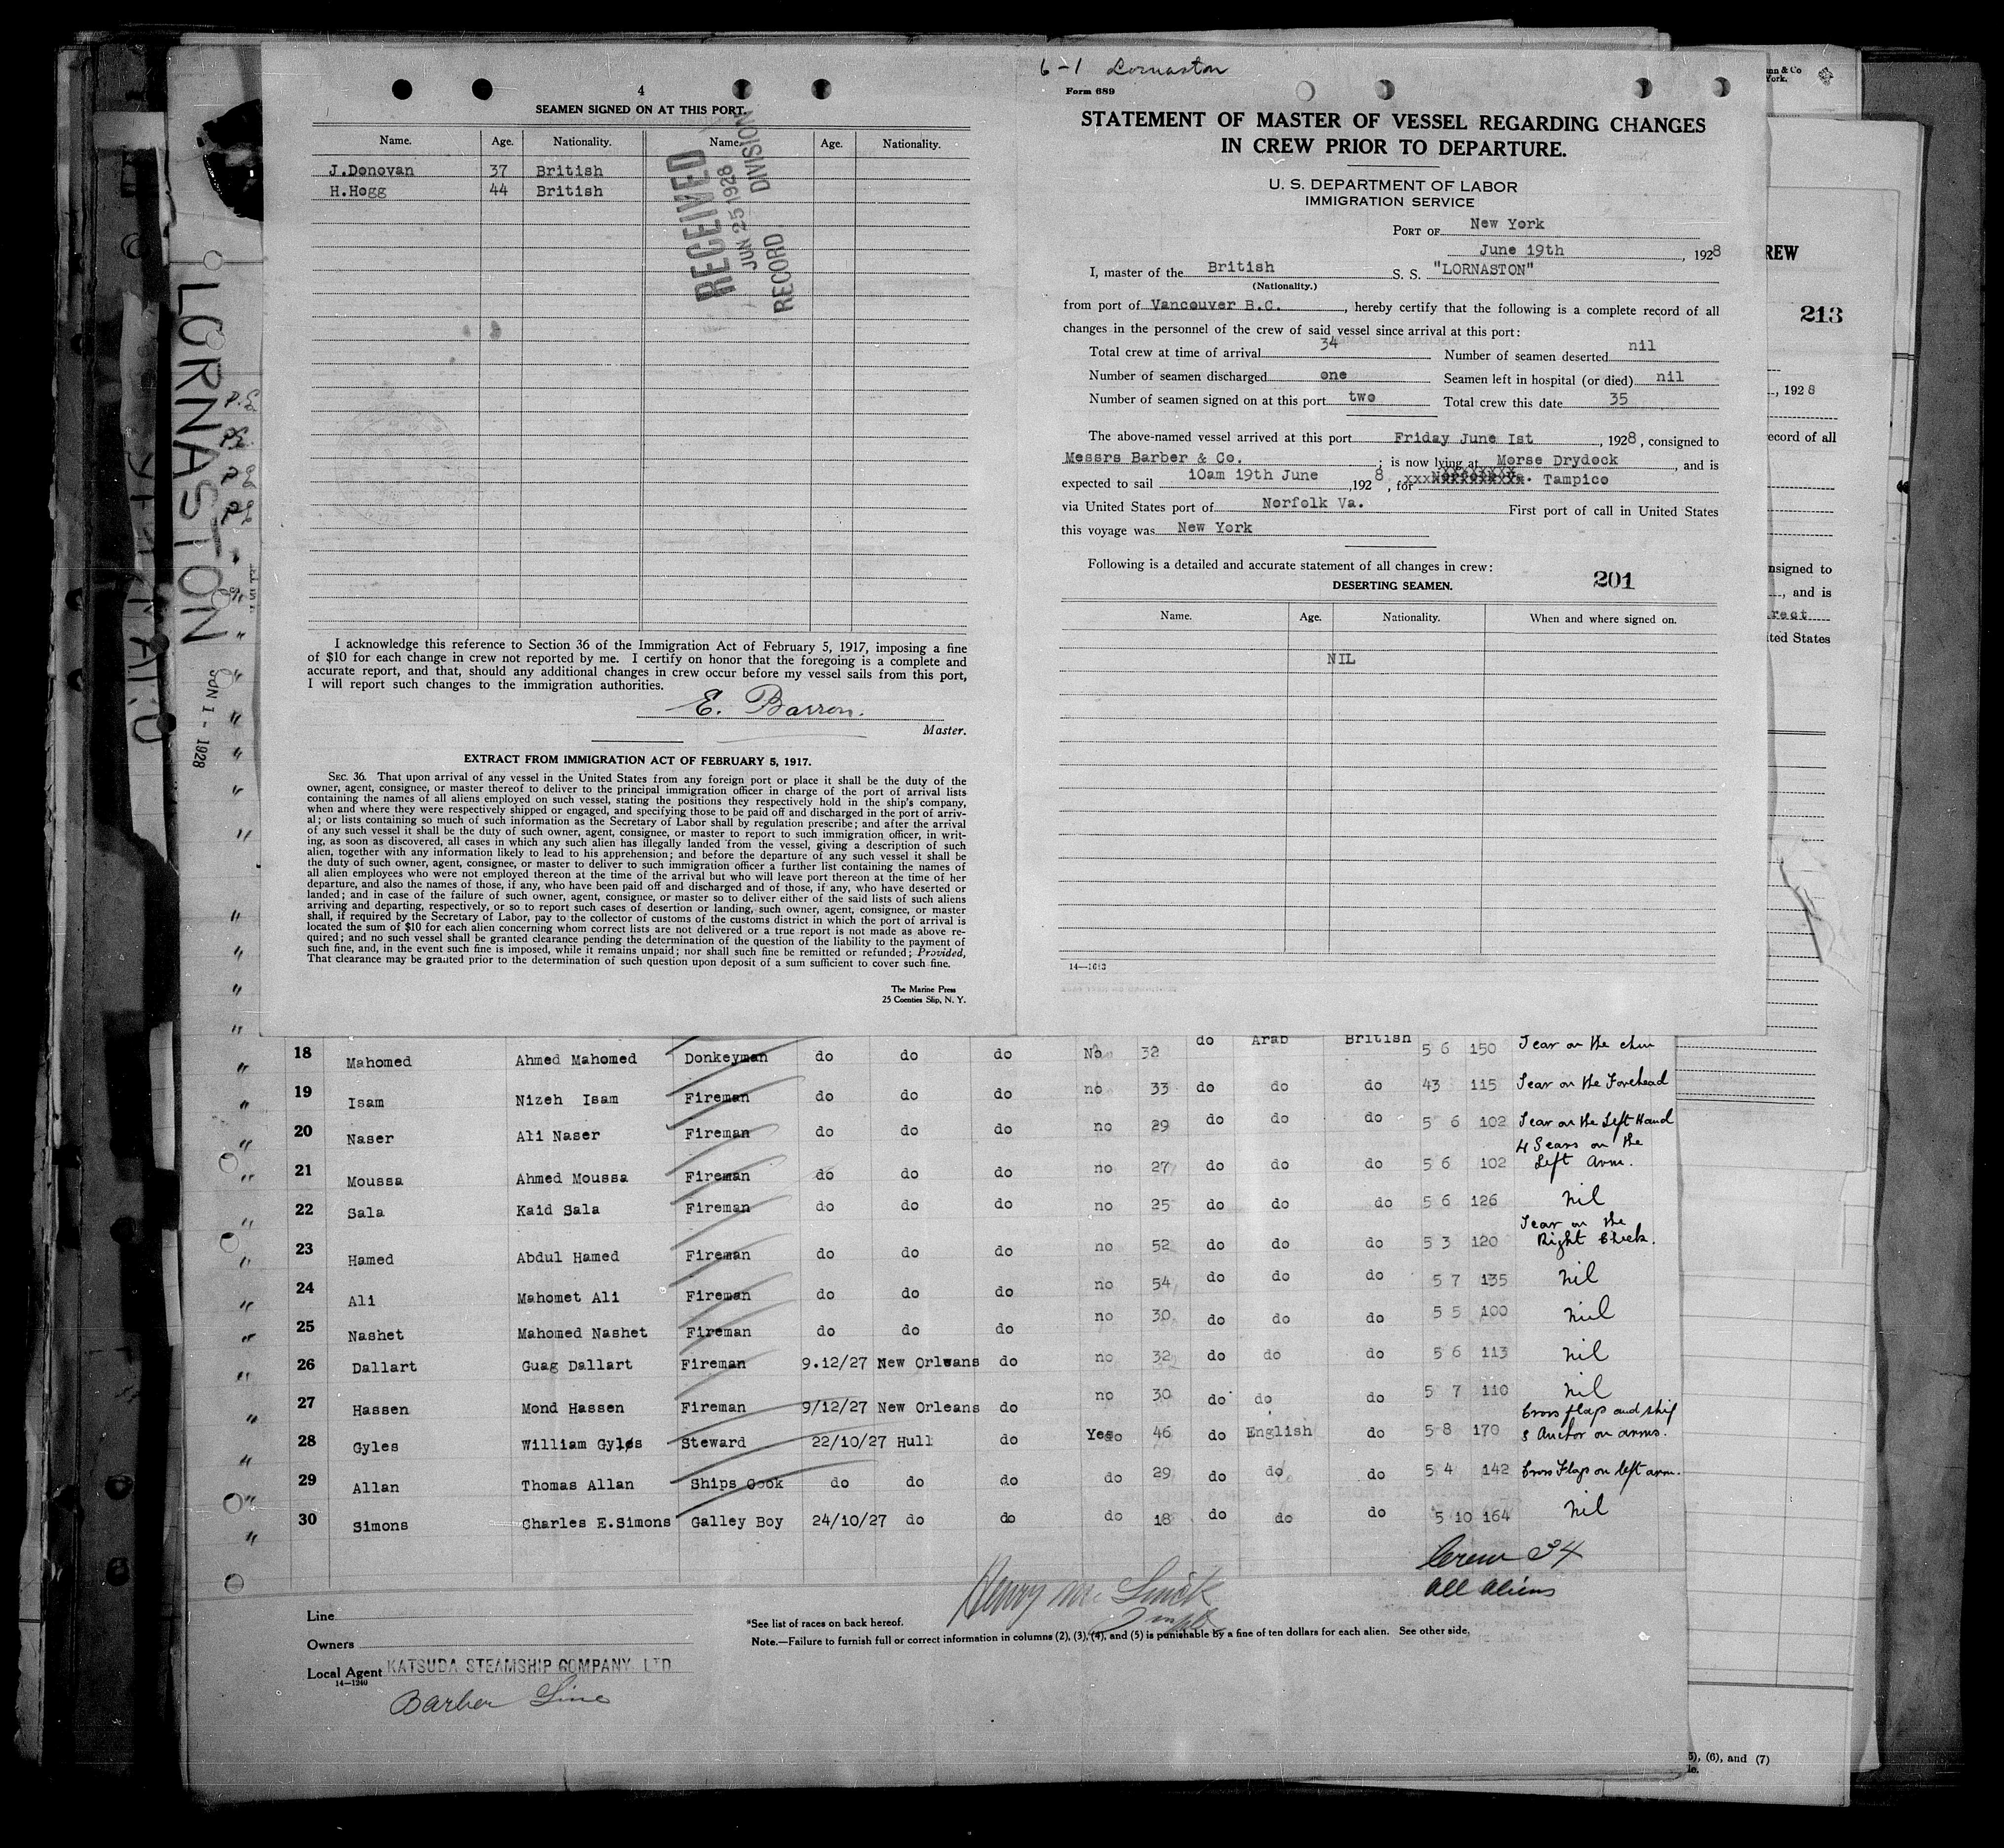 4
SEAMEN SIGNED ON AT THIS PORT.
Name. Age. Nationality. Name. Age. Nationality.
J.Donovan 37 British
H.Hogg 44 British
RECEIVED
JUN 25 1928
RECORD DIVISION
I acknowledge this reference to Section 36 of the Immigration Act of February 5, 1917, imposing a fine
of $10 for each change in crew not reported by me. I certify on honor that the foregoing is a complete and
accurate report, and that, should any additional changes in crew occur before my vessel sails from this port,
I will report such changes to the immigration authorities.
E. Barron.
Master.
EXTRACT FROM IMMIGRATION ACT OF FEBRUARY 5, 1917.
SEC. 36. That upon arrival of any vessel in the United States from any foreign port or place it shall be the duty of the
owner, agent, consignee, or master thereof to deliver to the principal immigration officer in charge of the port of arrival lists
containing the names of all aliens employed on such vessel, stating the positions they respectively hold in the ship's company,
when and where they were respectively shipped or engaged, and specifying those to be paid off and discharged in the port of arriv-
al; or lists containing so much of such information as the Secretary of Labor shall by regulation prescribe; and after the arrival
of any such vessel it shall be the duty of such owner, agent, consignee, or master to report to such immigration officer, in writ-
ing, as soon as discovered, all cases in which any such alien has illegally landed from the vessel, giving a description of such
alien, together with any information likely to lead to his apprehension; and before the departure of any such vessel it shall be
the duty of such owner, agent, consignee, or master to deliver to such immigration officer a further list containing the names of
all alien employees who were not employed thereon at the time of the arrival but who will leave port thereon at the time of her
departure, and also the names of those, if any, who have been paid off and discharged and of those, if any, who have deserted or
landed; and in case of the failure of such owner, agent, consignee, or master so to deliver either of the said lists of such aliens
arriving and departing, respectively, or so to report such cases of desertion or landing, such owner, agent, consignee, or master
shall, if required by the Secretary of Labor, pay to the collector of customs of the customs district in which the port of arrival is
located the sum of $10 for each alien concerning whom correct lists are not delivered or a true report is not made as above re-
quired; and no such vessel shall be granted clearance pending the determination of the question of the liability to the payment of
such fine, and, in the event such fine is imposed, while it remains unpaid; nor shall such fine be remitted or refunded; Provided,
That clearance may be granted prior to the determination of such question upon deposit of a sum sufficient to cover such fine.
The Marine Press
25 Coenties Slip, N. Y.
6-1 Lornaston
Form 689
STATEMENT OF MASTER OF VESSEL REGARDING CHANGES
IN CREW PRIOR TO DEPARTURE.
U. S. DEPARTMENT OF LABOR
IMMIGRATION SERVICE
PORT OF New York
June 19th, 1928
I, master of the British S. S. "LORNASTON"
(Nationality.)
from port of Vancouver B.C., hereby certify that the following is a complete record of all
changes in the personnel of the crew of said vessel since arrival at this port:
Total crew at time of arrival 34 Number of seamen deserted nil
Number of seamen discharged one Seamen left in hospital (or died) nil
Number of seamen signed on at this port two Total crew this date 35
The above-named vessel arrived at this port Friday June Ist, 1928, consigned to
Messrs Barber & Co.; is now lying at Morse Drydock, and is
expected to sail 10am 19th June, 1928, for Tampico
via United States port of Norfolk Va. First port of call in United States
this voyage was New York
Following is a detailed and accurate statement of all changes in crew:
DESERTING SEAMEN. 201
Name. Age. Nationality. When and where signed on.
NIL
14—1643
LORNASTON
JUN 1 - 1928
REW
213
, 1928
ecord of all
nsigned to
, and is
rect
ted States
18 Mahomed Ahmed Mahomed Donkeyman do do do No 32 do Arab British 5 6 150 Scar on the chin
19 Isam Nizeh Isam Fireman do do do no 33 do do do 43 115 Scar on the Forehead
20 Naser Ali Naser Fireman do do do no 29 do do do 5 6 102 Scar on the Left Hand
21 Moussa Ahmed Moussa Fireman do do do no 27 do do do 5 6 102 4 Scars on the Left Arm.
22 Sala Kaid Sala Fireman do do do no 25 do do do 5 6 126 nil
23 Hamed Abdul Hamed Fireman do do do no 52 do do do 5 3 120 Scar on the Right Cheek.
24 Ali Mahomet Ali Fireman do do do no 54 do do do 5 7 135 nil
25 Nashet Mahomed Nashet Fireman do do do no 30 do do do 5 5 100 nil
26 Dallart Guag Dallart Fireman 9.12/27 New Orleans do no 32 do do do 5 6 113 nil
27 Hassen Mond Hassen Fireman 9/12/27 New Orleans do no 30 do do do 5 7 110 nil
28 Gyles William Gyles Steward 22/10/27 Hull do Yes 46 do English do 5 8 170 Cross flags and ship & Anchor on arms.
29 Allan Thomas Allan Ships Cook do do do do 29 do do do 5 4 142 Cross Flags on left arm.
30 Simons Charles E.Simons Galley Boy 24/10/27 do do do 18 do do do 5 10 164 nil
Crew 34
All Aliens
Line
Owners
Local Agent KATSUDA STEAMSHIP COMPANY, LTD
14—1240
Barber Line
*See list of races on back hereof.
Note.—Failure to furnish full or correct information in columns (2), (3), (4), and (5) is punishable by a fine of ten dollars for each alien. See other side.
5), (6), and (7)